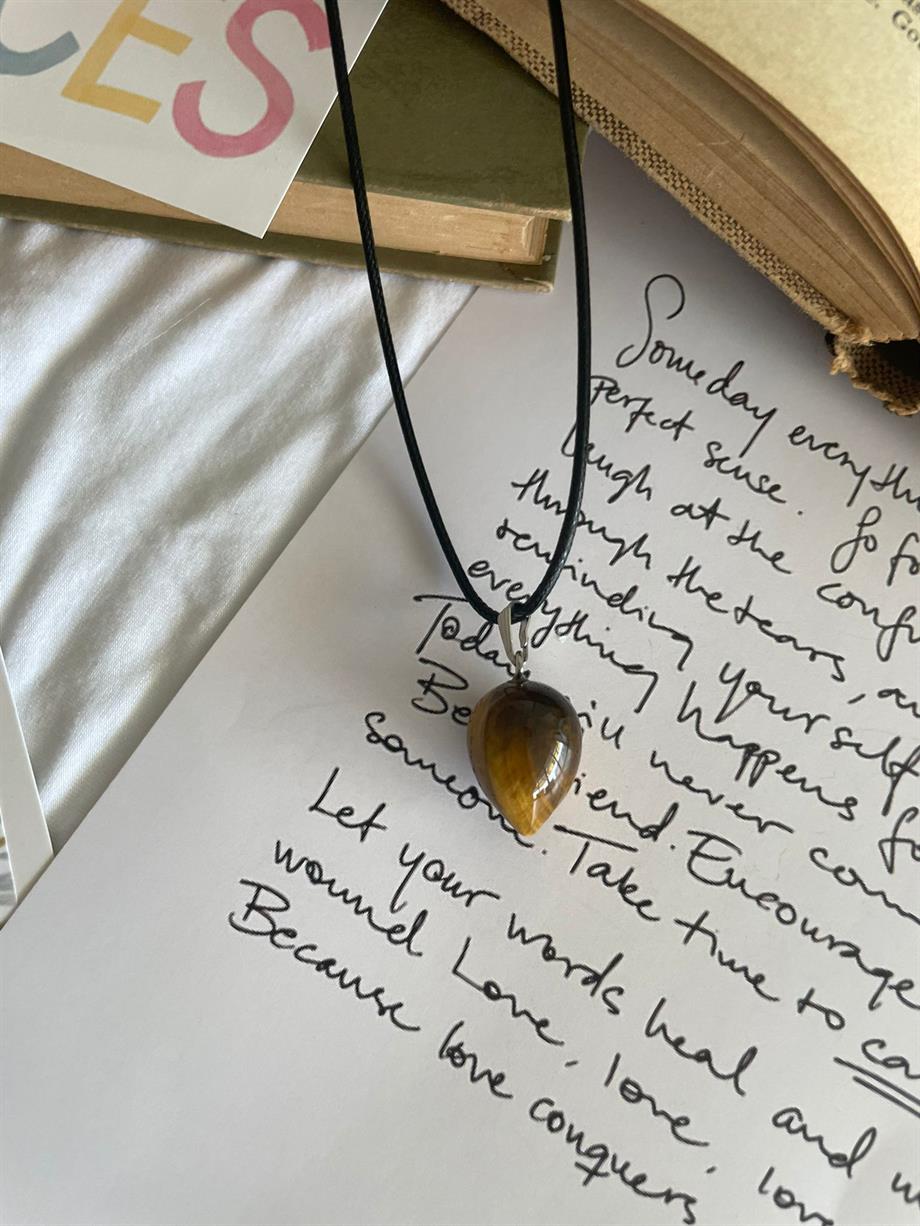 CES
Go
Someday everyth
perfect sense. So fo
laugh at the confu
through the tears, an
reminding yourself
everything happens fo
Today will never com
Be friend. Encourage
someone. Take time to ca
Let your words heal and w
wound Love, love, lov
Because love conquers